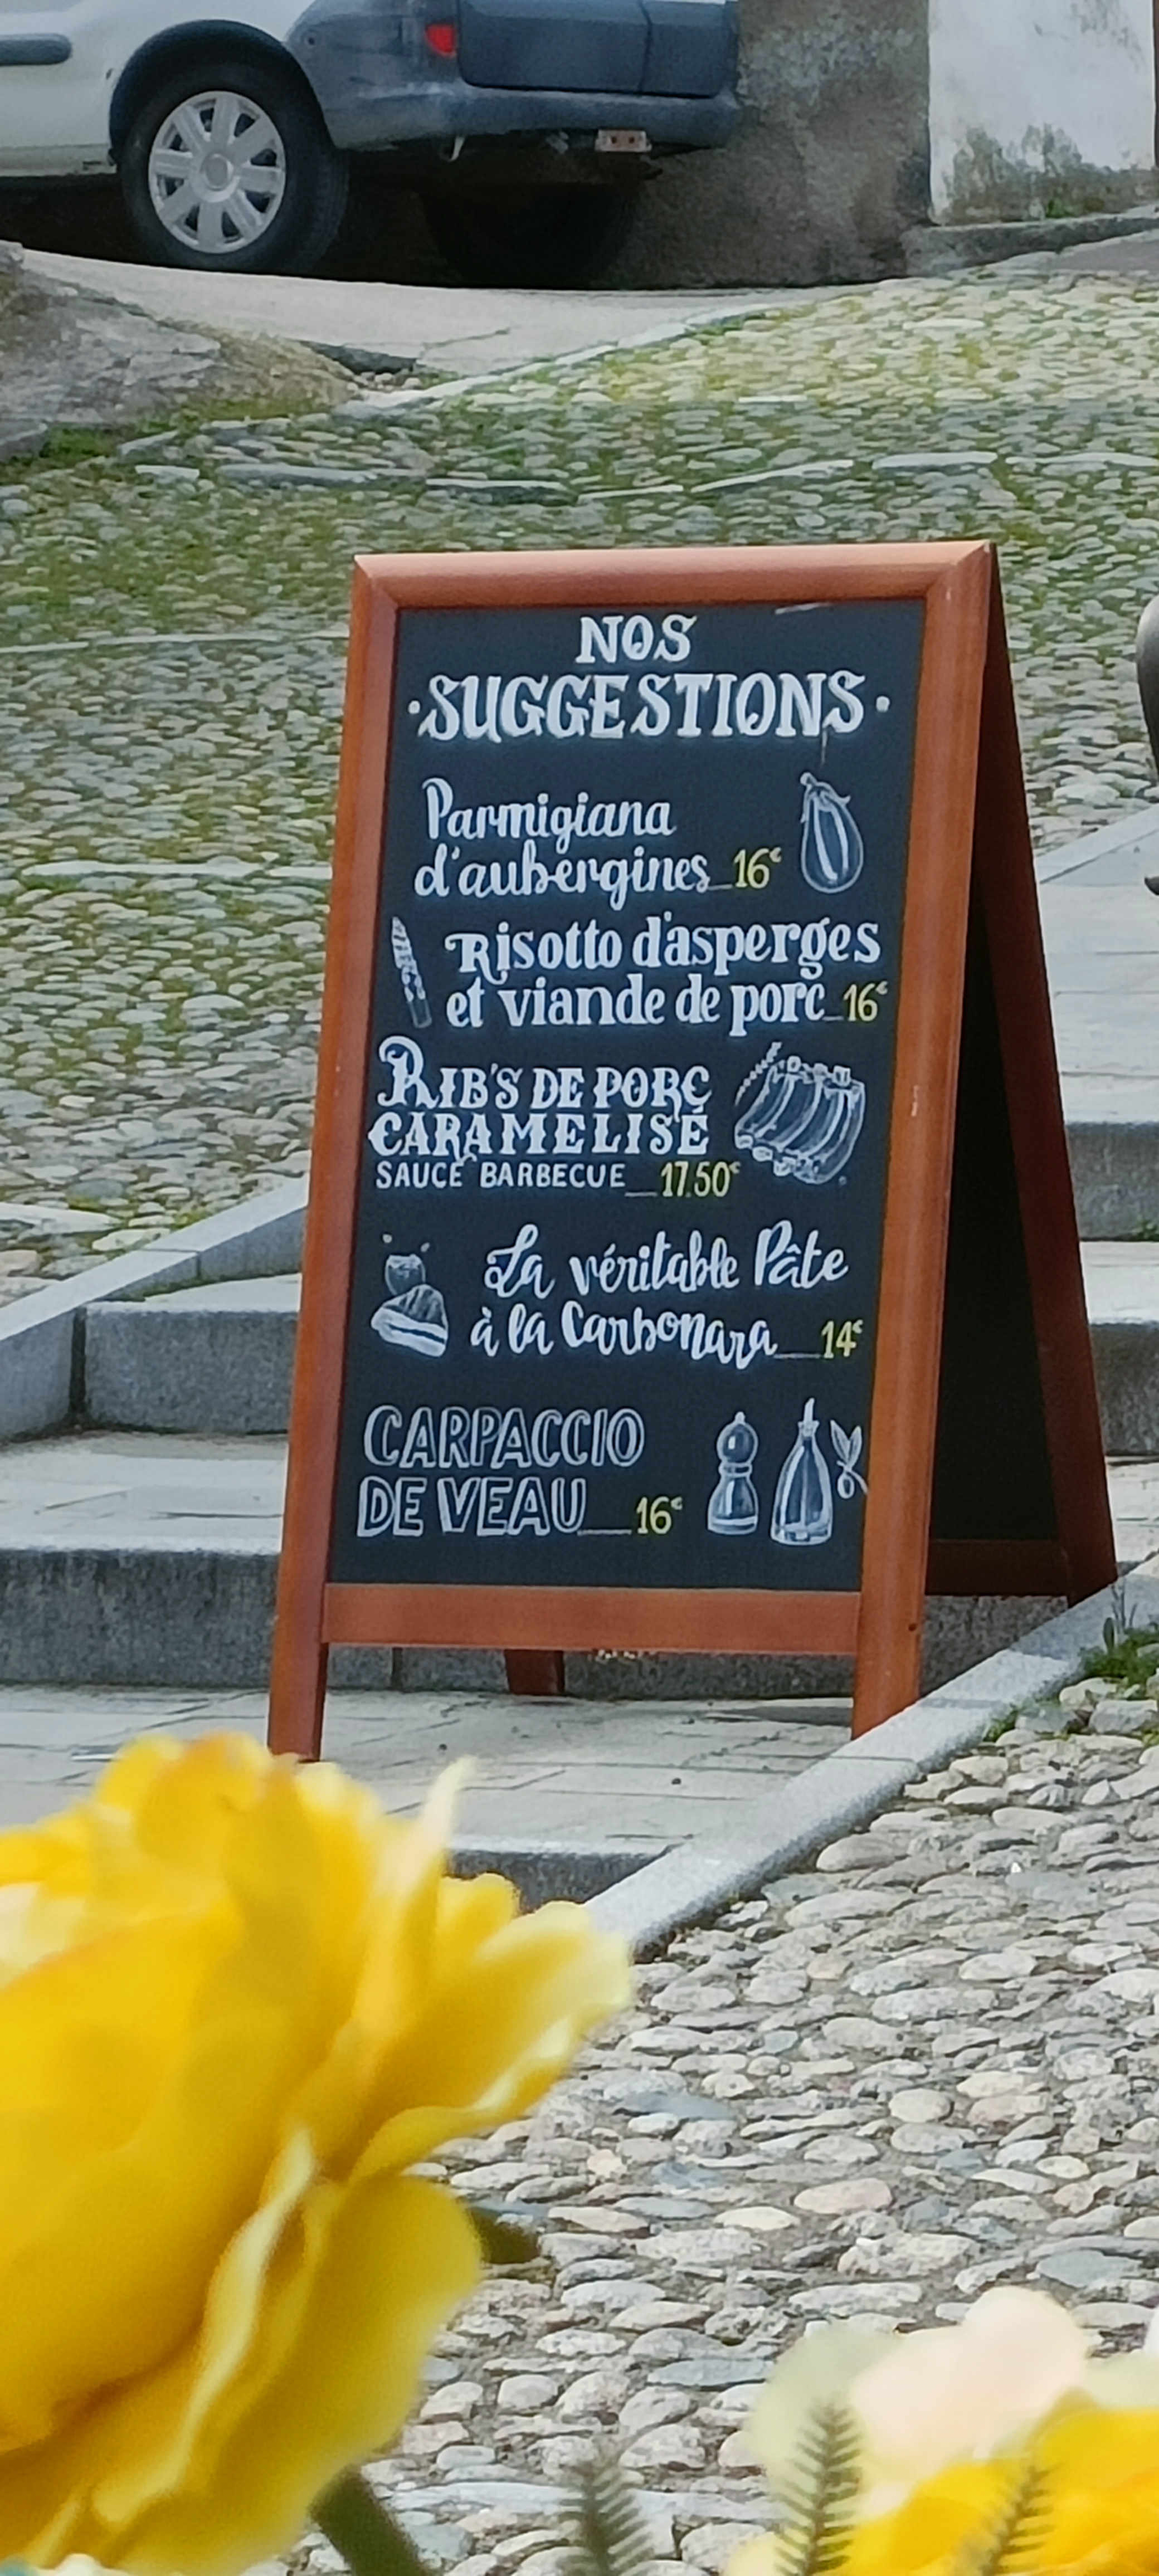 NOS
·SUGGESTIONS·
Parmigiana
d'aubergines 16€
Risotto d'asperges
et viande de porc 16€
RIB'S DE PORC
CARAMELISÉ
SAUCE BARBECUE 17.50€
La véritable Pâte
à la Carbonara 14€
CARPACCIO
DE VEAU 16€